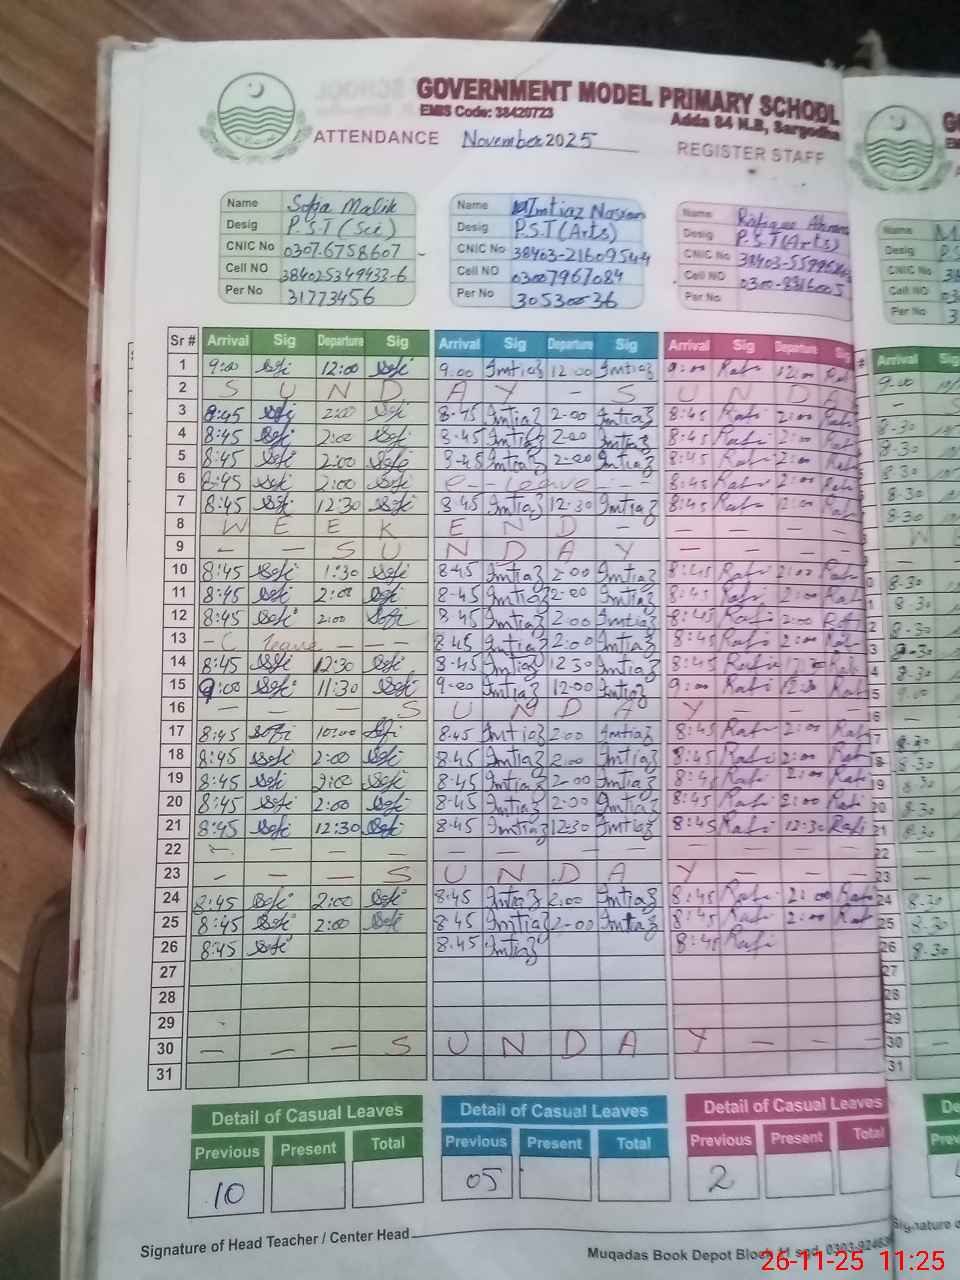 GOVERNMENT MODEL PRIMARY SCHOOL
EMIS Code: 38420723
Adda 84 N.B, Sargodha
ATTENDANCE November 2025 REGISTER STAFF
Name Sofia Malik
Desig P.S.T (Sci)
CNIC No 0307-6758607
Cell NO 384025349433-6
Per No 31773456
Name Imtiaz
Desig P.S.T (Arts)
CNIC No 38403-2160954-4
Cell NO 03007967084
Per No 30530036
Name
Desig P.S.T (Arts)
CNIC No
Cell NO 0300-8316005
Per No
Sr # Arrival Sig Departure Sig Arrival Sig Departure Sig Arrival Sig Departure Sig
1 9:00 Sofi 12:00 Sofi 9.00 Imtiaz 12 00 Imtiaz 9:00 Rafi 12:00
2 S U N D A Y - S U N D A
3 8:45 Sofi 2:00 Sofi 8.45 Imtiaz 2-00 Imtiaz 8:45 Rafi 2:00
4 8:45 Sofi 2:00 Sofi 8.45 Imtiaz 2-00 Imtiaz 8:45 Rafi 2:00
5 8:45 Sofi 2:00 Sofi 8-45 Imtiaz 2-00 Imtiaz 8:45 Rafi 2:00
6 8:45 Sofi 2:00 Sofi C - Leave - - 8:45 Rafi 2:00
7 8:45 Sofi 12:30 Sofi 8.45 Imtiaz 12-30 Imtiaz 8:45 Rafi 2:00
8 W E E K E N D - - - - -
9 - - S U N D A Y - - - -
10 8:45 Sofi 1:30 Sofi 8-45 Imtiaz 2-00 Imtiaz 8:45 Rafi 2:00
11 8:45 Sofi 2:00 Sofi 8-45 Imtiaz 2-00 Imtiaz 8:45 Rafi 2:00
12 8:45 Sofi 2:00 Sofi 8.45 Imtiaz 2.00 Imtiaz 8:45 Rafi 2:00
13 - C leave - - - 8.45 Imtiaz 2:00 Imtiaz 8:45 Rafi 2:00
14 8:45 Sofi 12:30 Sofi 8-45 Imtiaz 12 30 Imtiaz 8:45 Rafi 12:30 Rafi
15 9:00 Sofi 11:30 Sofi 9-00 Imtiaz 12-00 Imtiaz 9:00 Rafi Rafi
16 - - - S U N D A Y - - -
17 8:45 Sofi 10:00 Sofi 8.45 Imtiaz 2.00 Imtiaz 8:45 Rafi 2:00 Rafi
18 8:45 Sofi 2:00 Sofi 8.45 Imtiaz 2.00 Imtiaz 8:45 Rafi 2:00 Rafi
19 8:45 Sofi 2:00 Sofi 8-45 Imtiaz 2-00 Imtiaz 8:45 Rafi 2:00 Rafi
20 8:45 Sofi 2:00 Sofi 8-45 Imtiaz 2-00 Imtiaz 8:45 Rafi 2:00 Rafi
21 8:45 Sofi 12:30 Sofi 8.45 Imtiaz 12-30 Imtiaz 8:45 Rafi 12:30 Rafi
22 - - - - - - - - - - - -
23 - - - S U N D A Y - - -
24 8:45 Sofi 2:00 Sofi 8.45 Imtiaz 2.00 Imtiaz 8:45 Rafi 2:00 Rafi
25 8:45 Sofi 2:00 Sofi 8.45 Imtiaz 2-00 Imtiaz 8:45 Rafi 2:00
26 8:45 Sofi 8.45 Imtiaz 8:45 Rafi
27
28
29
30 - - - S U N D A Y - - -
31
Detail of Casual Leaves Detail of Casual Leaves Detail of Casual Leaves
Previous Present Total Previous Present Total Previous Present Total
10 05 2
Signature of Head Teacher / Center Head
Muqadas Book Depot Block
26-11-25 11:25